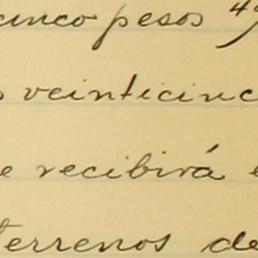 cinco pesos
s veinticinc
e recibirá e
terrenos de